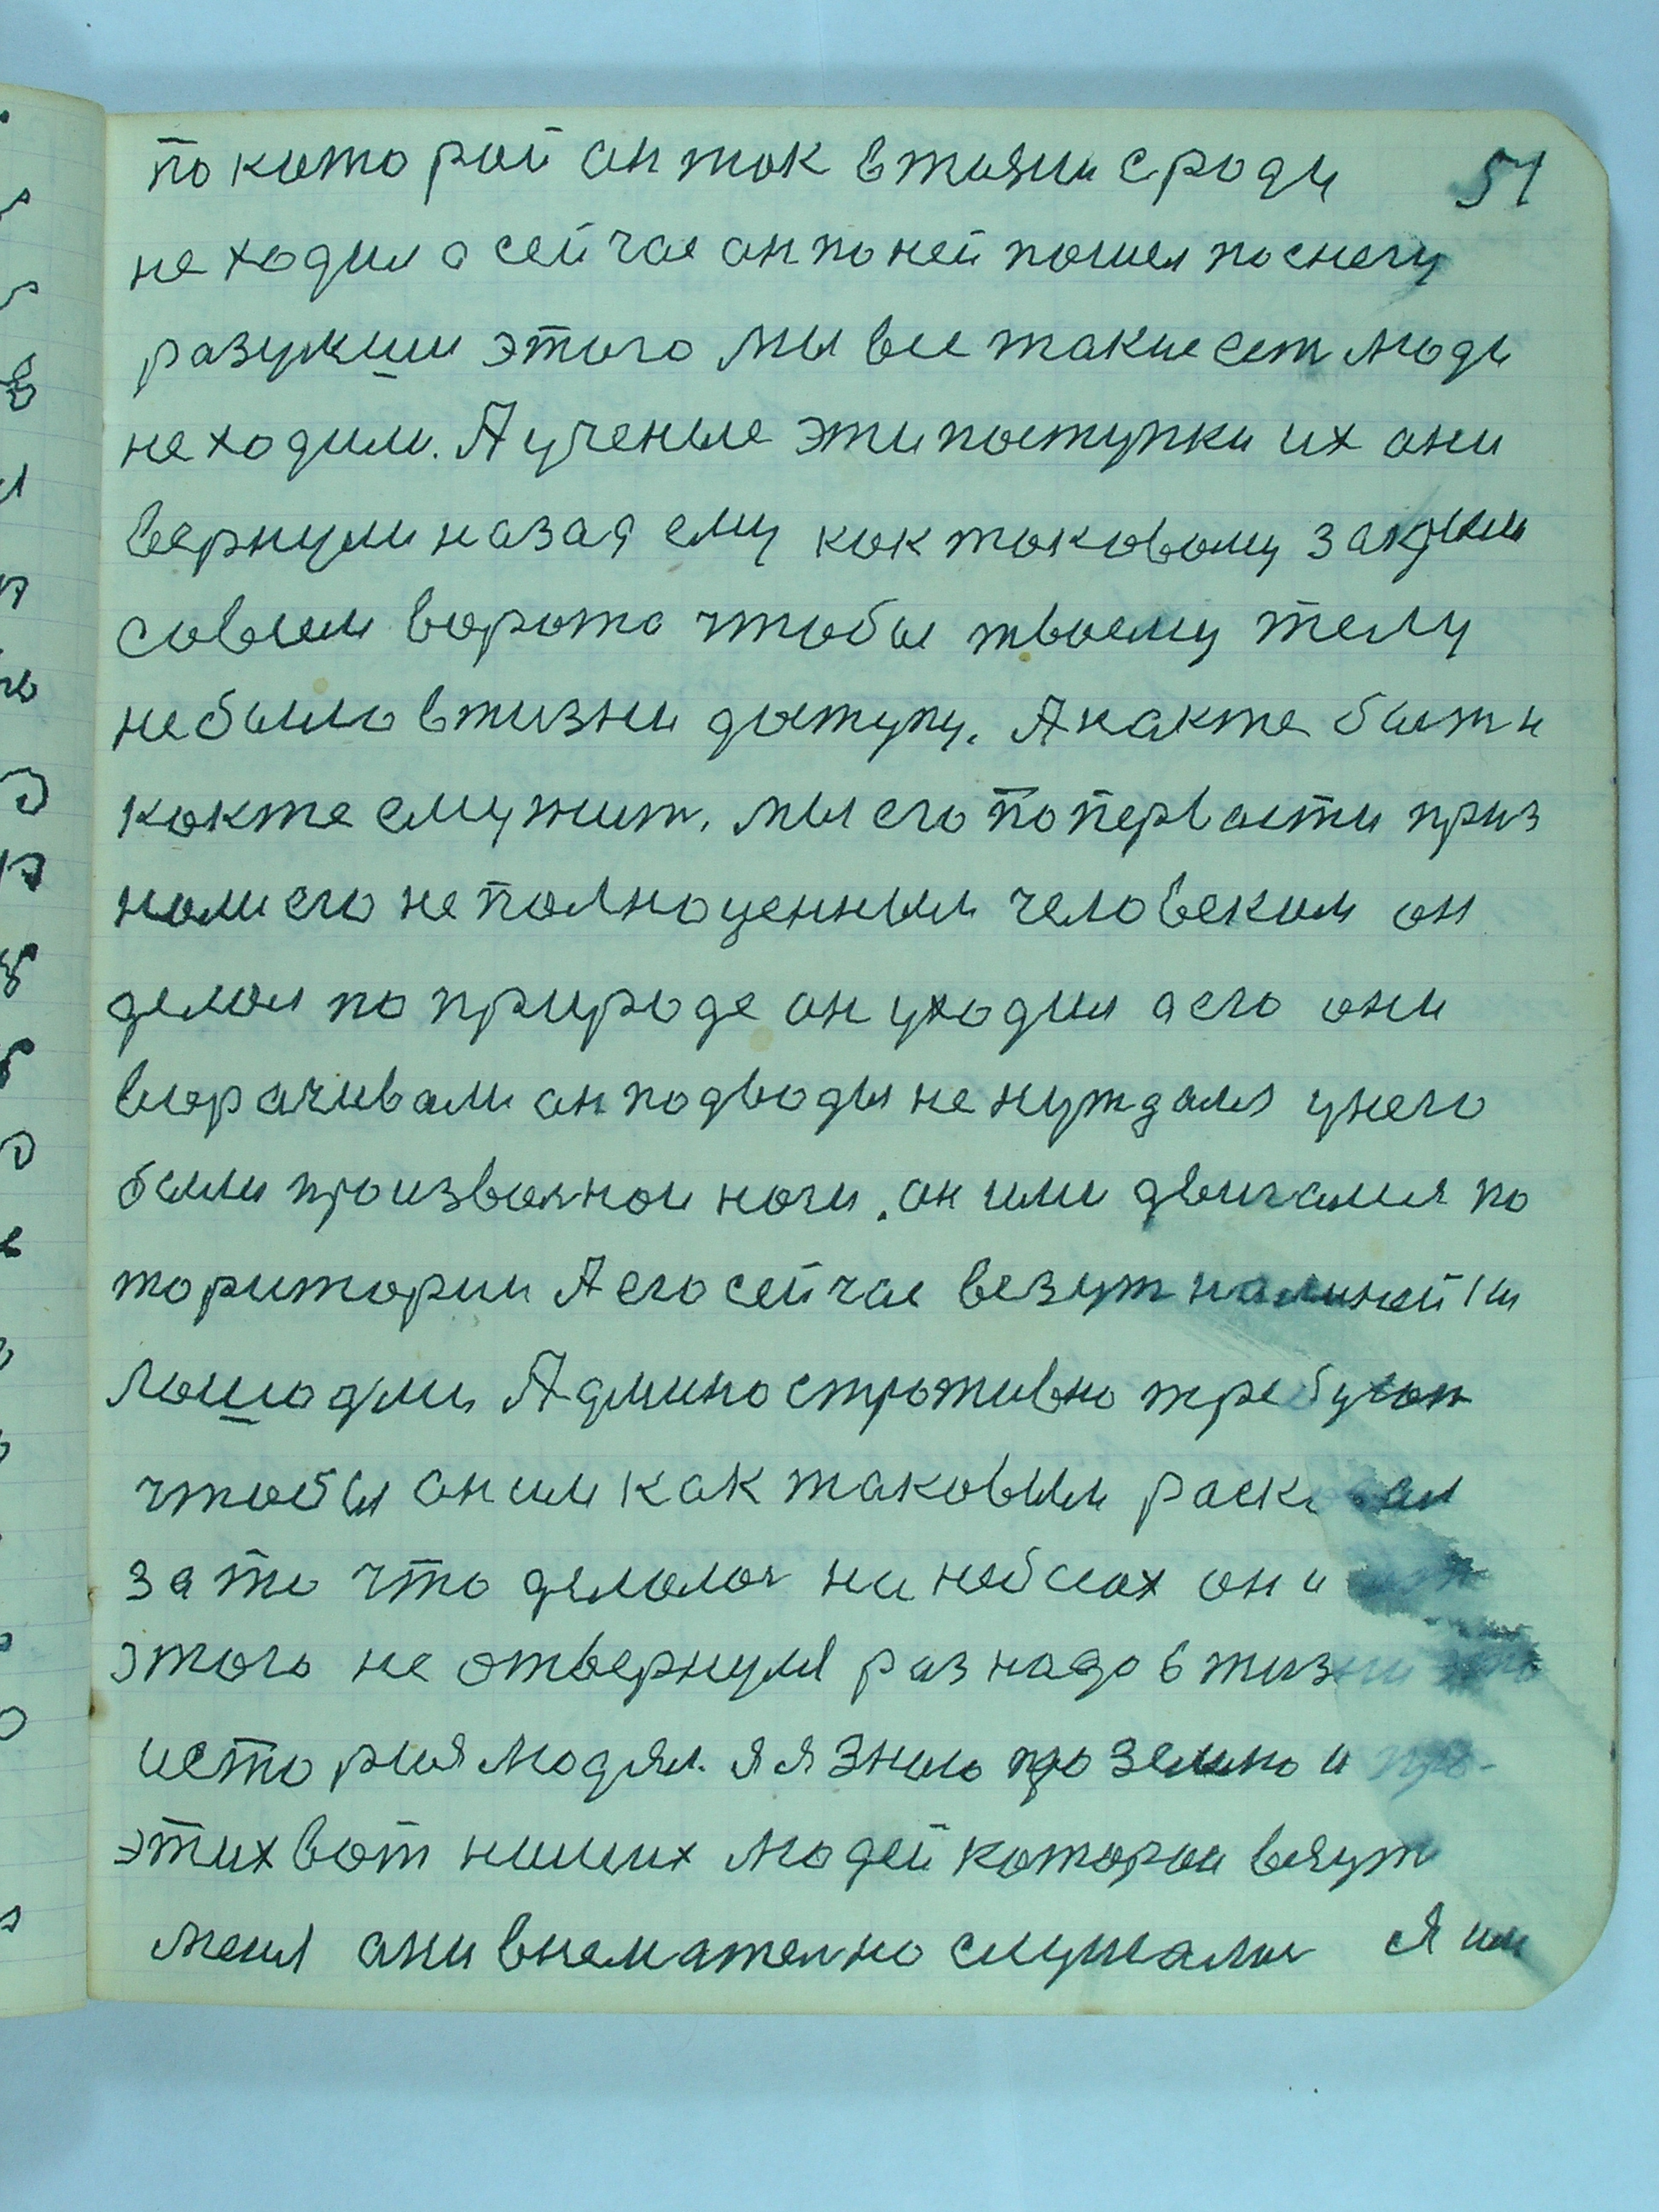 по которой он так в жизни сроду 51
не ходил а сейчас он по ней пошел по снегу
разумши этого мы все такие сет люди
не ходили. А ученые эти поступки их они
вернули назад ему как таковому закрыли
совсем ворота чтобы твоему телу
не было в жизни доступу. А как же быть и
как же ему жит. мы его по первости приз
нали его не полноценным человеком он
делал по природе он уходил а его они
ворачивали он подводы не нуждался у него
были произволнои ноги. он ими двигался по
торитории А его сейчас везут на линей
лошадми Админостротивно требуют
чтобы он им как таковым раска
за то что делолос на небесах они
этого не отвернулся раз надо в жизни
история людям. я я знаю про землю и про
этих вот наших людей которои везут
меня они внемателно слушалы Я им